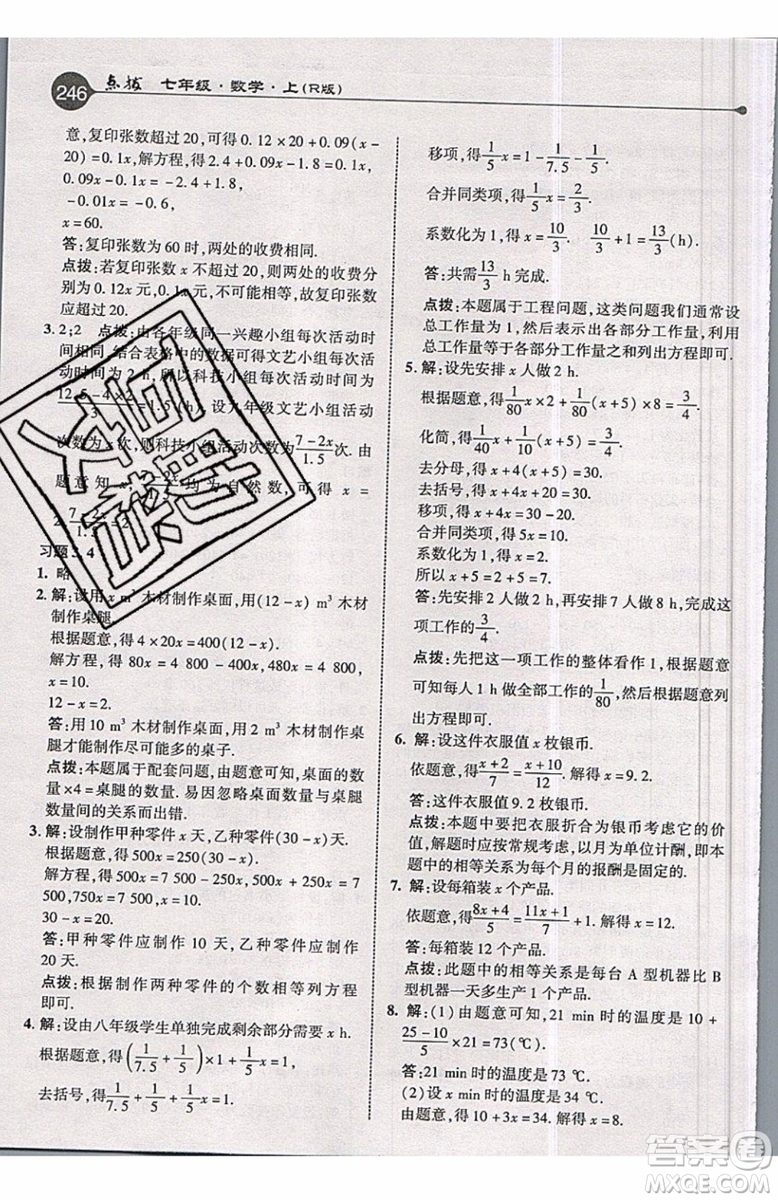 246 点拨 七年级·数学·上(R版)
意,复印张数超过 20,可得 0.12×20+0.09(x-
20)=0.1x,解方程,得 2.4+0.09x-1.8=0.1x,
0.09x-0.1x=-0.6,
-0.01x=-0.6,
x=60.
答:复印张数为 60 时,两处的收费相同.
点拨:若复印张数 x 不超过 20,则两处的收费分
别为 0.12x 元,0.1x 元,不可能相同,故复印张数
应超过 20.
3. 2;2 点拨:由各年级同一兴趣小组每次活动时
间相同,结合表格中的数据可得文艺小组每次活
动时间为 2 h,所以科技小组每次活动时间为
=1.5(h),设九年级文艺小组活动
次数为 x 次,则科技小组活动次数为(7-2x)/1.5 次.由
题意知 x, 均为自然数,得 x=
2,
习题 3.4
1. 略
2. 解:设用 x m³ 木材制作桌面,用(12-x) m³ 木材
制作桌腿.
根据题意,得 4×20x=400(12-x).
解方程,得 80x=4 800-400x,480x=4 800,
x=10.
12-x=2.
答:用 10 m³ 木材制作桌面,用 2 m³ 木材制作桌
腿才能制作尽可能多的桌子.
点拨:本题属于配套问题,由题意可知,桌面的数
量×4=桌腿的数量.易因忽略桌面数量与桌腿
数量间的关系而出错.
3. 解:设制作甲种零件 x 天,乙种零件(30-x)天.
根据题意,得 500x=250(30-x).
解方程,得 500x=7 500-250x,500x+250x=7
500,750x=7 500,x=10.
30-x=20.
答:甲种零件应制作 10 天,乙种零件应制作
20 天.
点拨:根据制作两种零件的个数相等列方程
即可.
4. 解:设由八年级学生单独完成剩余部分需要 x h.
根据题意,得(1/7.5+1/5)×1+1/5x=1.
去括号,得1/7.5+1/5+1/5x=1.
移项,得1/5x=1-1/7.5-1/5.
合并同类项,得1/5x=2/3.
系数化为 1,得 x=10/3.10/3+1=13/3(h).
答:共需13/3 h 完成.
点拨:本题属于工程问题,这类问题我们通常设
总工作量为 1,然后表示出各部分工作量,利用
总工作量等于各部分工作量之和列出方程即可.
5. 解:设先安排 x 人做 2 h.
根据题意,得1/80x×2+1/80(x+5)×8=3/4.
化简,得1/40x+1/10(x+5)=3/4.
去分母,得 x+4(x+5)=30.
去括号,得 x+4x+20=30.
移项,得 x+4x=30-20.
合并同类项,得 5x=10.
系数化为 1,得 x=2.
所以 x+5=2+5=7.
答:先安排 2 人做 2 h,再安排 7 人做 8 h,完成这
项工作的3/4.
点拨:先把这一项工作的整体看作 1,根据题意
可知每人 1 h 做全部工作的1/80,然后根据题意列
出方程即可.
6. 解:设这件衣服值 x 枚银币.
依题意,得(x+2)/7=(x+10)/12.解得 x=9.2.
答:这件衣服值 9.2 枚银币.
点拨:本题中要把衣服折合为银币考虑它的价
值,解题时应按常规,以月为单位计酬,即本
题中的相等关系为每个月的报酬是固定的.
7. 解:设每箱装 x 个产品.
依题意,得(8x+4)/5=(11x+1)/7+1.解得 x=12.
答:每箱装 12 个产品.
点拨:此题中的相等关系是每台 A 型机器比 B
型机器一天多生产 1 个产品.
8. 解:(1)由题意可知,21 min 时的温度是 10+
(25-10)/5×21=73(℃).
答:21 min 时的温度是 73 ℃.
(2)设 x min 时的温度是 34 ℃.
由题意,得 10+3x=34.解得 x=8.
答案圈
MXQE.COM